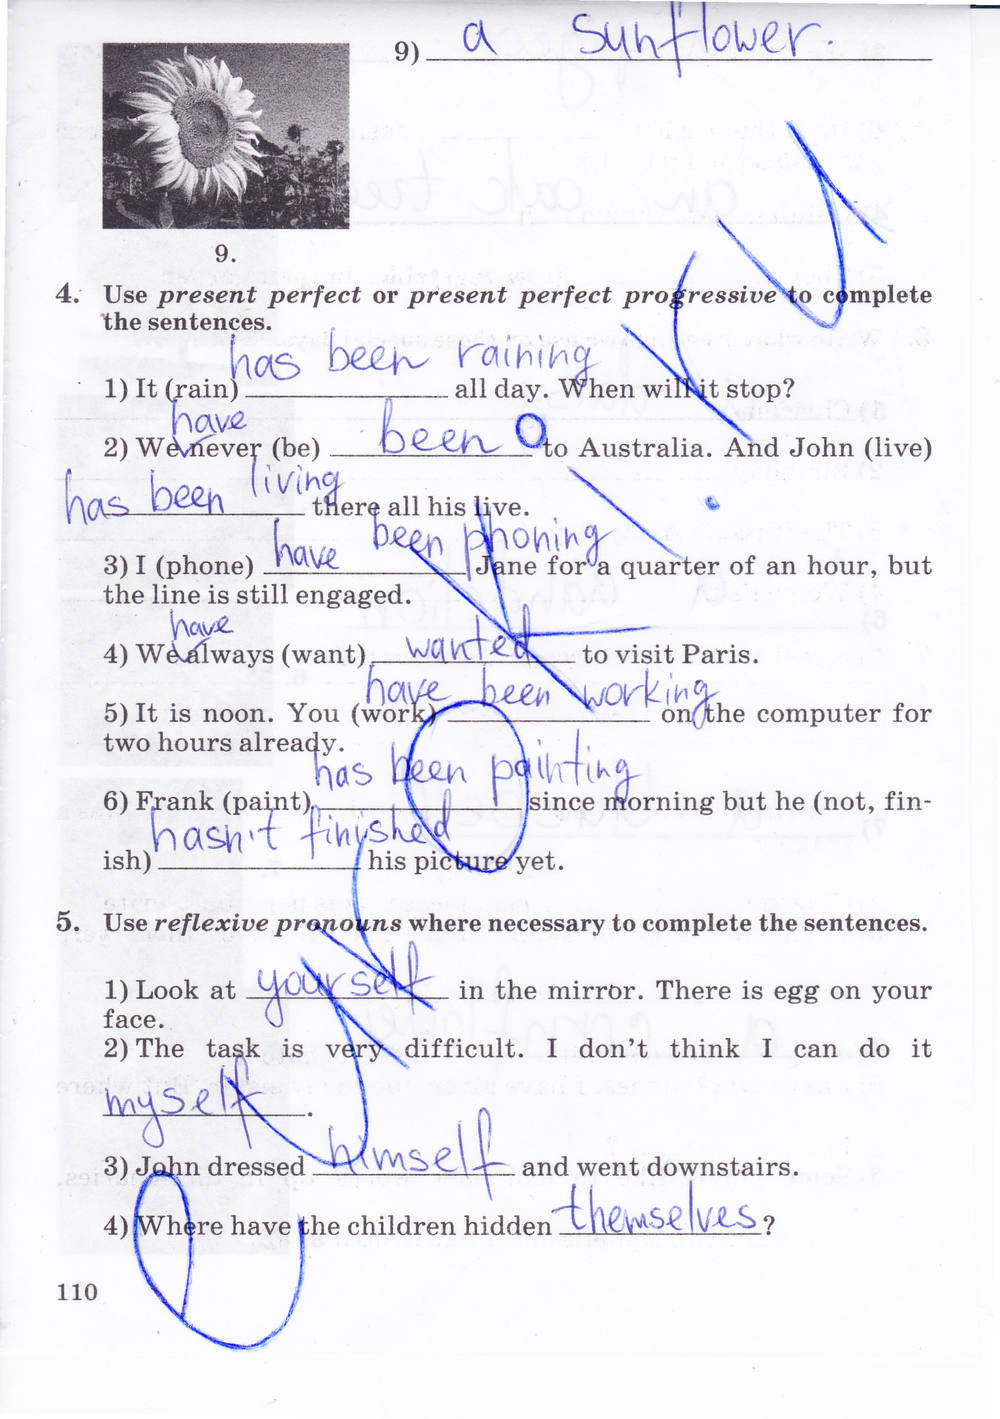 9) a sunflower.
9.
4. Use present perfect or present perfect progressive to complete
the sentences.
has been raining
1) It (rain) all day. When will it stop?
have
2) We never (be) been to Australia. And John (live)
has been living there all his live.
have been phoning
3) I (phone) Jane for a quarter of an hour, but
the line is still engaged.
have
4) We always (want) wanted to visit Paris.
have been working
5) It is noon. You (work) on the computer for
two hours already.
has been painting
6) Frank (paint) since morning but he (not, fin-
hasn't finished
ish) his picture yet.
5. Use reflexive pronouns where necessary to complete the sentences.
1) Look at yourself in the mirror. There is egg on your
face.
2) The task is very difficult. I don't think I can do it
myself.
3) John dressed himself and went downstairs.
4) Where have the children hidden themselves?
110